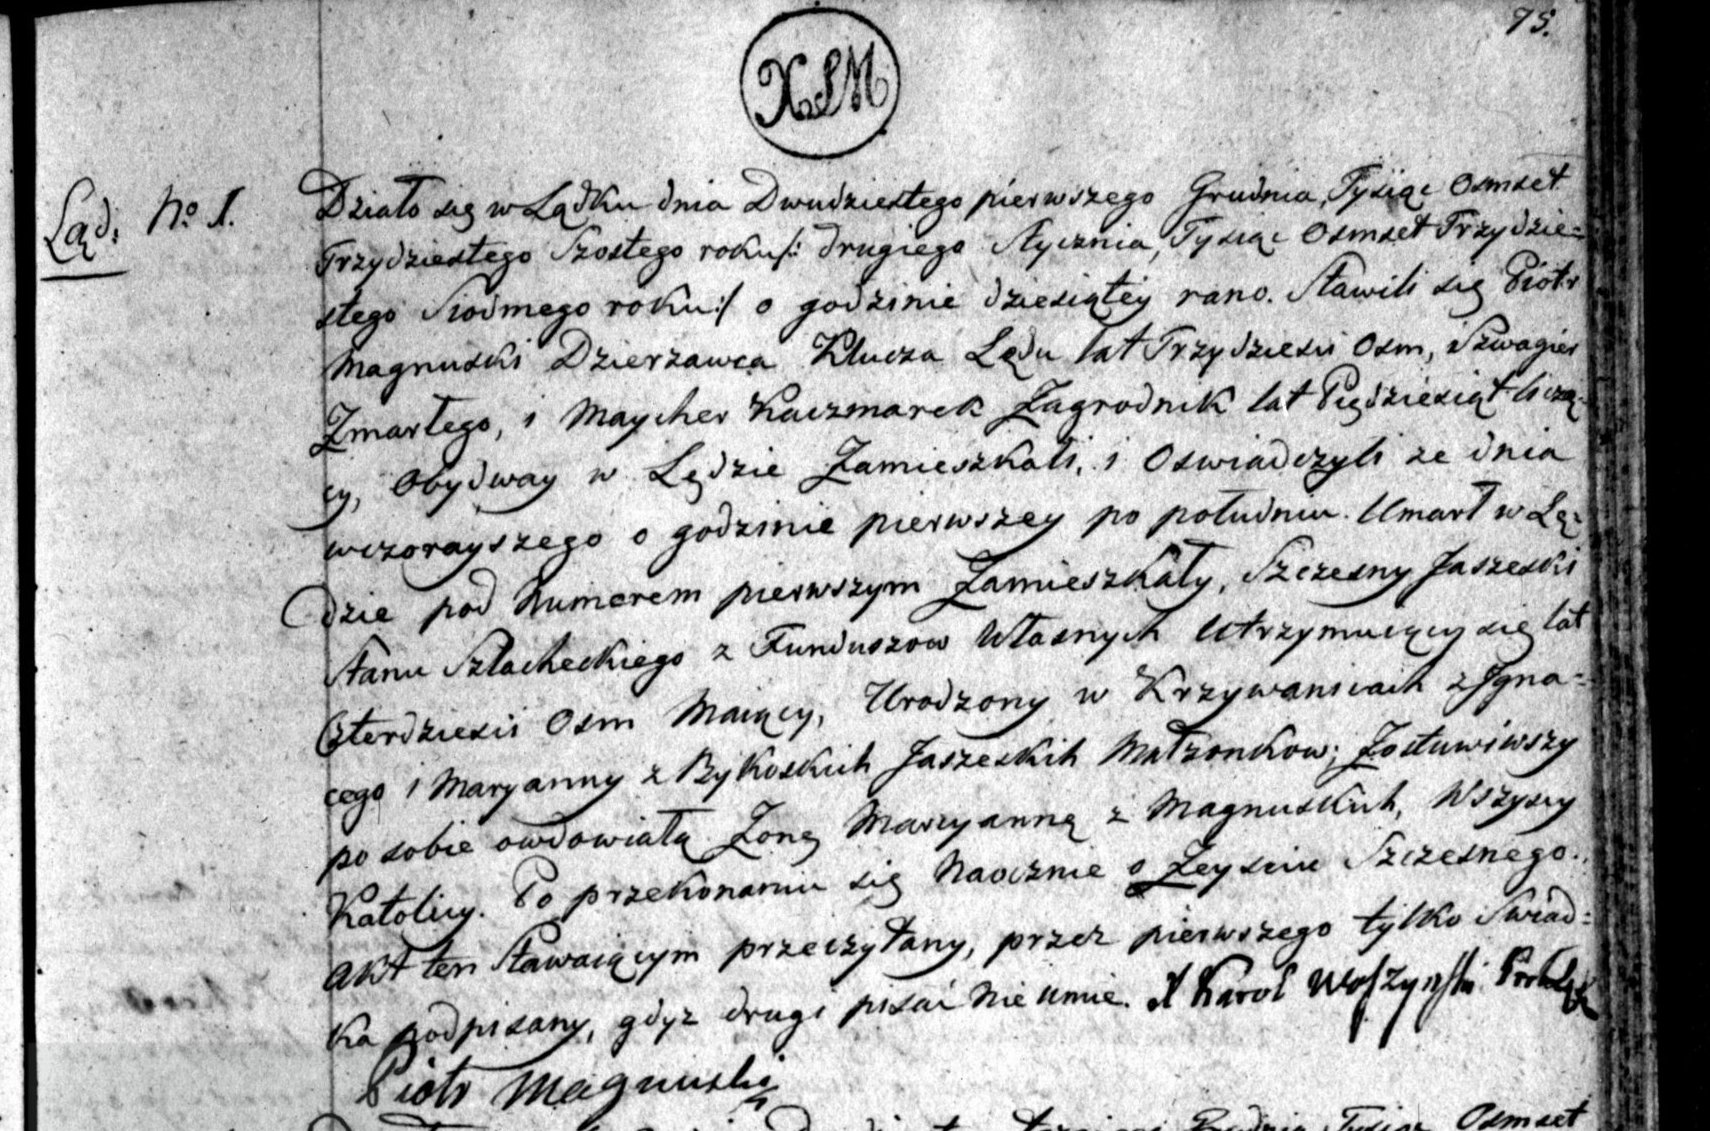 75.
XSM
Ląd: No 1.
Działo się w Lądku dnia Dwudziestego pierwszego Grudnia, Tysiąc Osmset
Trzydziestego Szostego roku/: drugiego Stycznia, Tysiąc Osmset Trzydzie=
stego Siodmego roku:/ o godzinie dziesiątey rano. Stawili się Piotr
Magnuski Dzierzawca Klucza Lądu lat Trzydziesci Osm, Szwagier
Zmarłego, i Maycher Kaczmarek Zagrodnik lat Piędziesiąt liczą=
cy, Obydway w Lądzie Zamieszkali, i Oswiadczyli ze dnia
wczorayszego o godzinie pierwszey po południu. Umarł w Lą=
dzie pod Numerem pierwszym Zamieszkały, Szczesny Jaszeski
Stanu Szlacheckiego z Funduszow Własnych Utrzymuiący się lat
Czterdziesci Osm Maiący, Urodzony w Krzywanicach z Igna=
cego i Maryanny z Bykoskich Jaszeskich Małzonkow; Zostawiwszy
po sobie owdowiałą Zonę Maryannę z Magnuskich, Wszyscy
Katolicy. Po przekonaniu się Naocznie o Zeysciu Szczesnego.
Akt ten Stawaiącym przeczytany, przez pierwszego tylko Swiad=
ka podpisany, gdyz drugi pisać nie umie. X Karol
Piotr Magnuski
Osmset